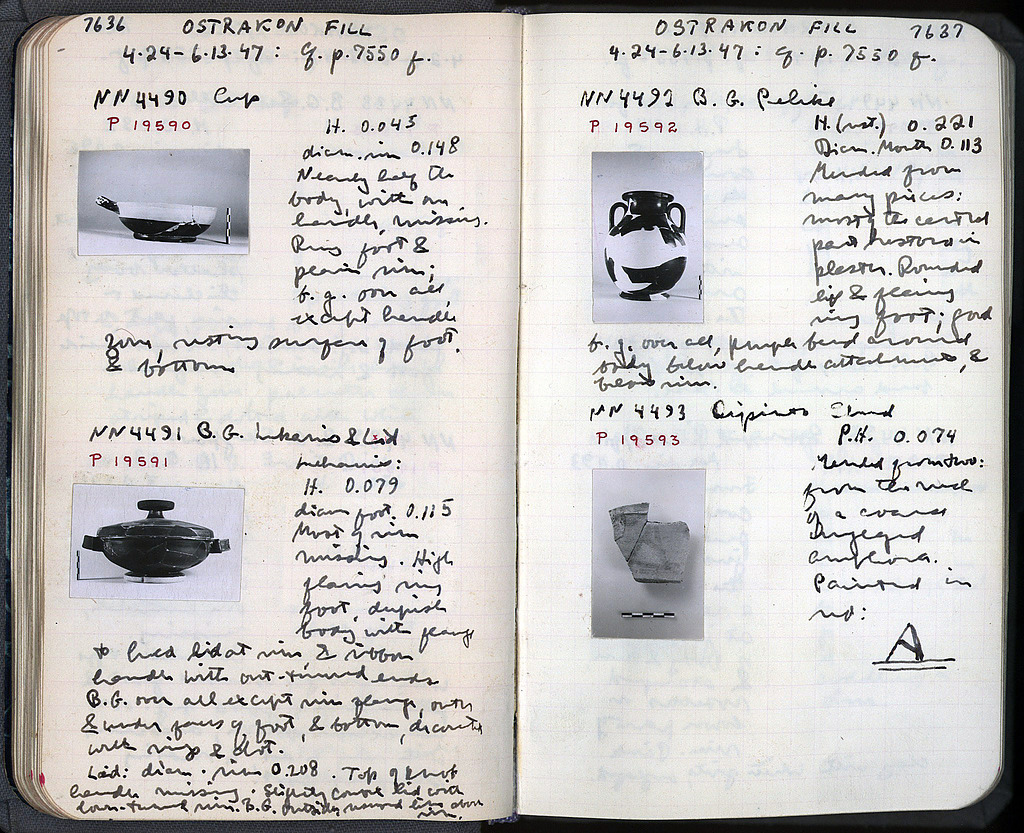 7636 OSTRAKON FILL
4.24-6.13.47: cf. p. 7550 f.
NN 4490 Cup
P 19590
H. 0.045
diam. rim 0.148
Nearly half the
body, with one
handle, missing.
Ring foot &
plain rim;
b.g. over all
except handle
zone, resting surface of foot,
& bottom
NN 4491 B.G. Lekanis & Lid
P 19591
Lekanis:
H. 0.079
diam foot. 0.115
Most of rim
missing. High
flaring ring
foot, deepish
body with flange
to hold lid at rim & ribbon
handles with out-turned ends
B.G. over all except rim flange, outer
& under faces of foot, & bottom, decorated
with ring & dot.
Lid: diam. rim 0.208. Top of knob
handle missing. Slightly convex lid with
down-turned rim. B.G. outside, reserved line above
rim.
OSTRAKON FILL 7637
4.24-6.13.47: cf. p. 7550 f.
NN 4492 B.G. Pelike
P 19592
H. (rest.) 0.221
Diam. Mouth 0.113
Mended from
many pieces:
most of the central
part restored in
plaster. Rounded
lip & flaring
ring foot; good
b.g. over all, purple band around
body below handle attachments, &
below rim.
NN 4493 Dipinto Sherd
P 19593
P.H. 0.074
Mended from two:
from the neck
of a coarse
amphora.
Painted in
red:
A